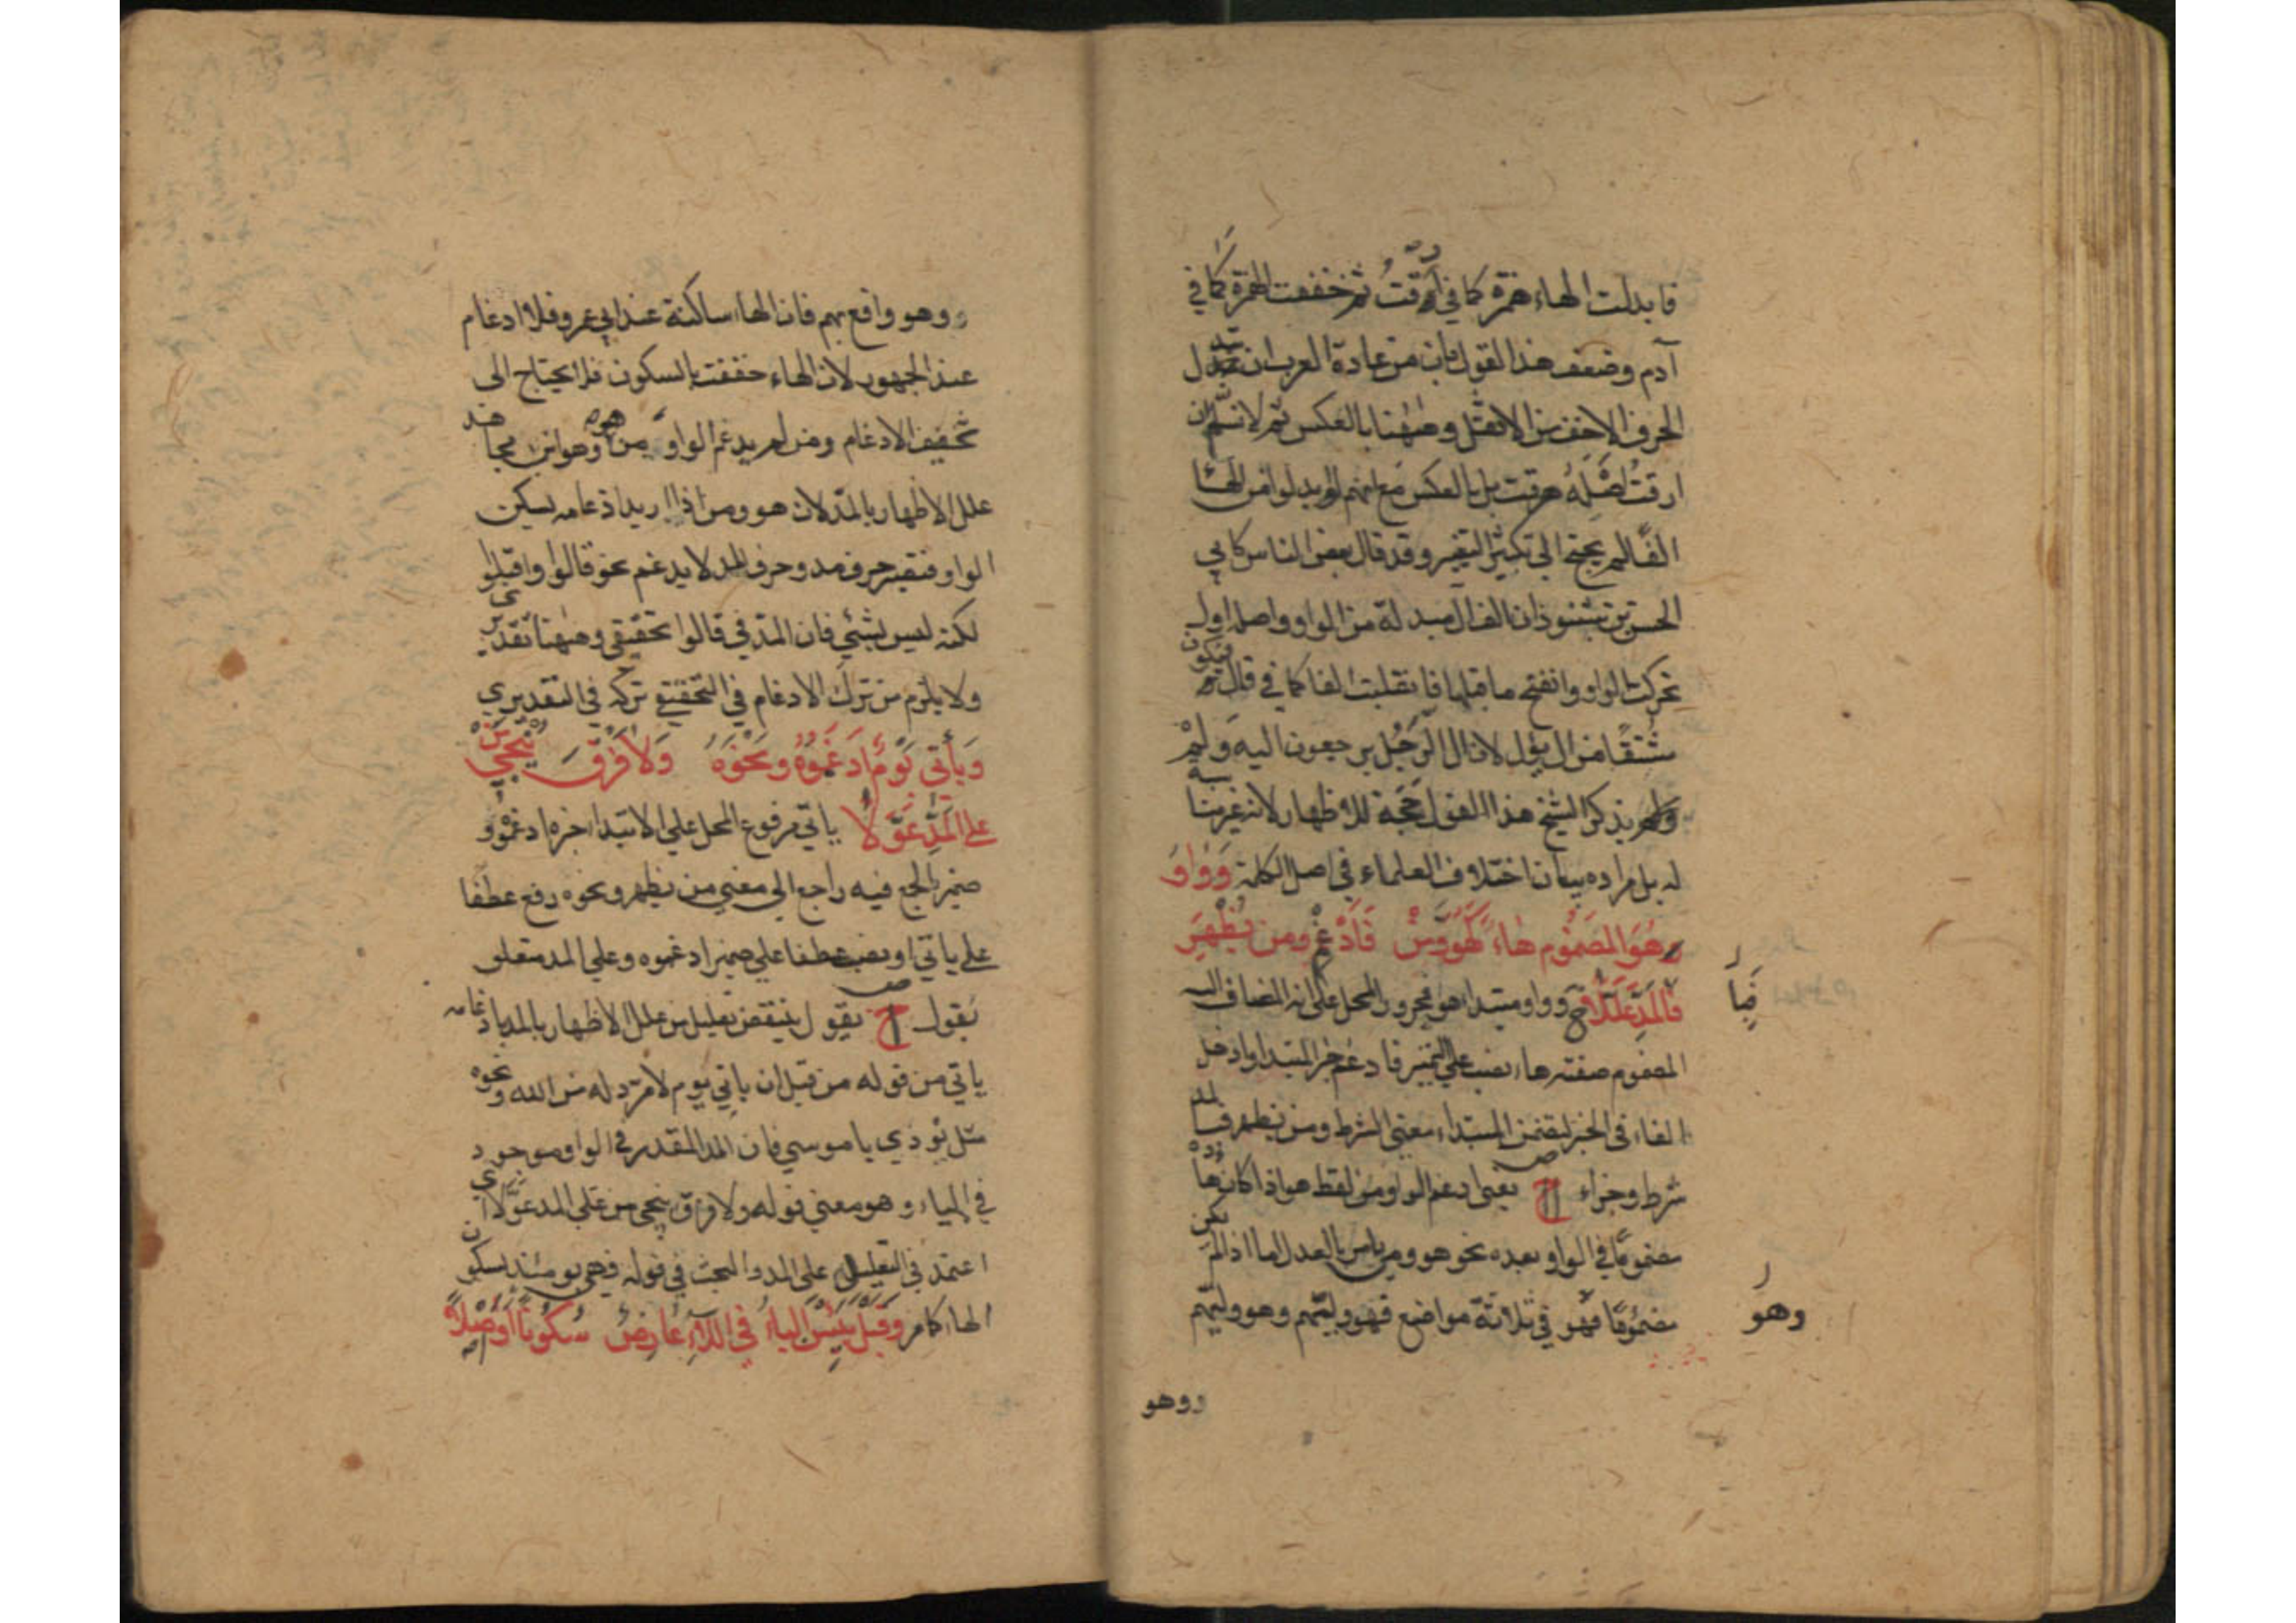 فابدلت الهاء همزة كما في ارقت ثم خففت الهمزة كما في
آدم وضعف هذا القول فان من عادة العرب ان تبدل
الحرف الاخف من الاثقل وههنا بالعكس ثم لا نسلم ان
ارقت اصله هرقت بل بالعكس مع انهم لو بدلوا من الهاء
الفا لم يحتج الى تكثير التغير وقد قال بعض الناس كابي
الحسن بن شنبوذ ان الف آل مبدلة من الواو واصله اول
تحركت الواو وانفتح ما قبلها فانقلبت الفا كما في قال فيكون
مشتقا من آل يؤل لان آل الرجل يرجعون اليه
ولم يذكر الشيخ هذا القول حجة للاظهار لانه غير مناسبة
له بل مراده بيان اختلاف العلماء في اصل الكلمة وَوَاوُ
هُوَ المضموم هاءً كَهُوَ وَمَنْ فَأَدْغِمْ ومن يُظْهِرْ
فبالمَدِّ عَلَّلَا ح وواو مبتدا هو مجرور المحل على انه المضاف اليه
المضموم صفته هاء نصب على التميز فادغم خبر المبتدا وادخل
الفاء في الخبر لتضمن المبتداء معنى الشرط ومن يظهر فبالمد
شرط وجزاء ص يعني ادغم الواو من لفظ هو اذا كان هاؤه
مضموما في الواو بعده نحو هو ومن يامر بالعدل اما اذا لم يكن
مضموما فهو في ثلاثة مواضع فهو وليهم وهو وليهم
فبا
وهو
ووهو
ووهو واقع بهم فان الهاء ساكنة عند ابي عمرو فلا ادغام
عند الجمهور لان الهاء خففت بالسكون فلا يحتاج الى
تخفيف الادغام ومن لم يدغم الواو من هو وهو ابن مجاهد
علل الاظهار بالمد لان هو ومن اذا اريد ادغامه تسكن
الواو فتصير حرف مد وحرف المد لا يدغم نحو قالوا واقبلوا
لكنه ليس بشيء فان المد في قالوا تحقيقي وههنا تقديري
ولا يلزم من ترك الادغام في التحقيقي تركه في التقديري
وَيَأْتِيَ يَوْمٌ أَدْغَمُوهُ وَنَحْوَهُ وَلَا فَرْقَ يُنْجِي مَنْ
عَلَى المَدِّ عَوَّلَا ياتي مرفوع المحل على الابتدا خبره ادغموه و
ضمير الجمع فيه راجع الى معنى من يظهر ونحوه رفع عطفا
على ياتي او نصب عطفا على ضمير ادغموه وعلى المد متعلق
بقول ص يقول ينتقض تعليل من علل الاظهار بالمد بادغامه
ياتي من قوله من قبل ان ياتي يوم لا مرد له من الله ونحوه
مثل نودي يا موسى فان المد المقدر في الواو موجود
في الياء وهو معنى قوله ولا فرق ينجي من على المد عولا اي
اعتمد في التعليل على المد والبحث في قوله فهي يومئذ بسكون
الهاء كما مر وَقَبْلَ يَئِسْنَ اليَاءُ في اللَّاءِ عَارِضٌ سُكُونًا أَوْ أَصْلًا